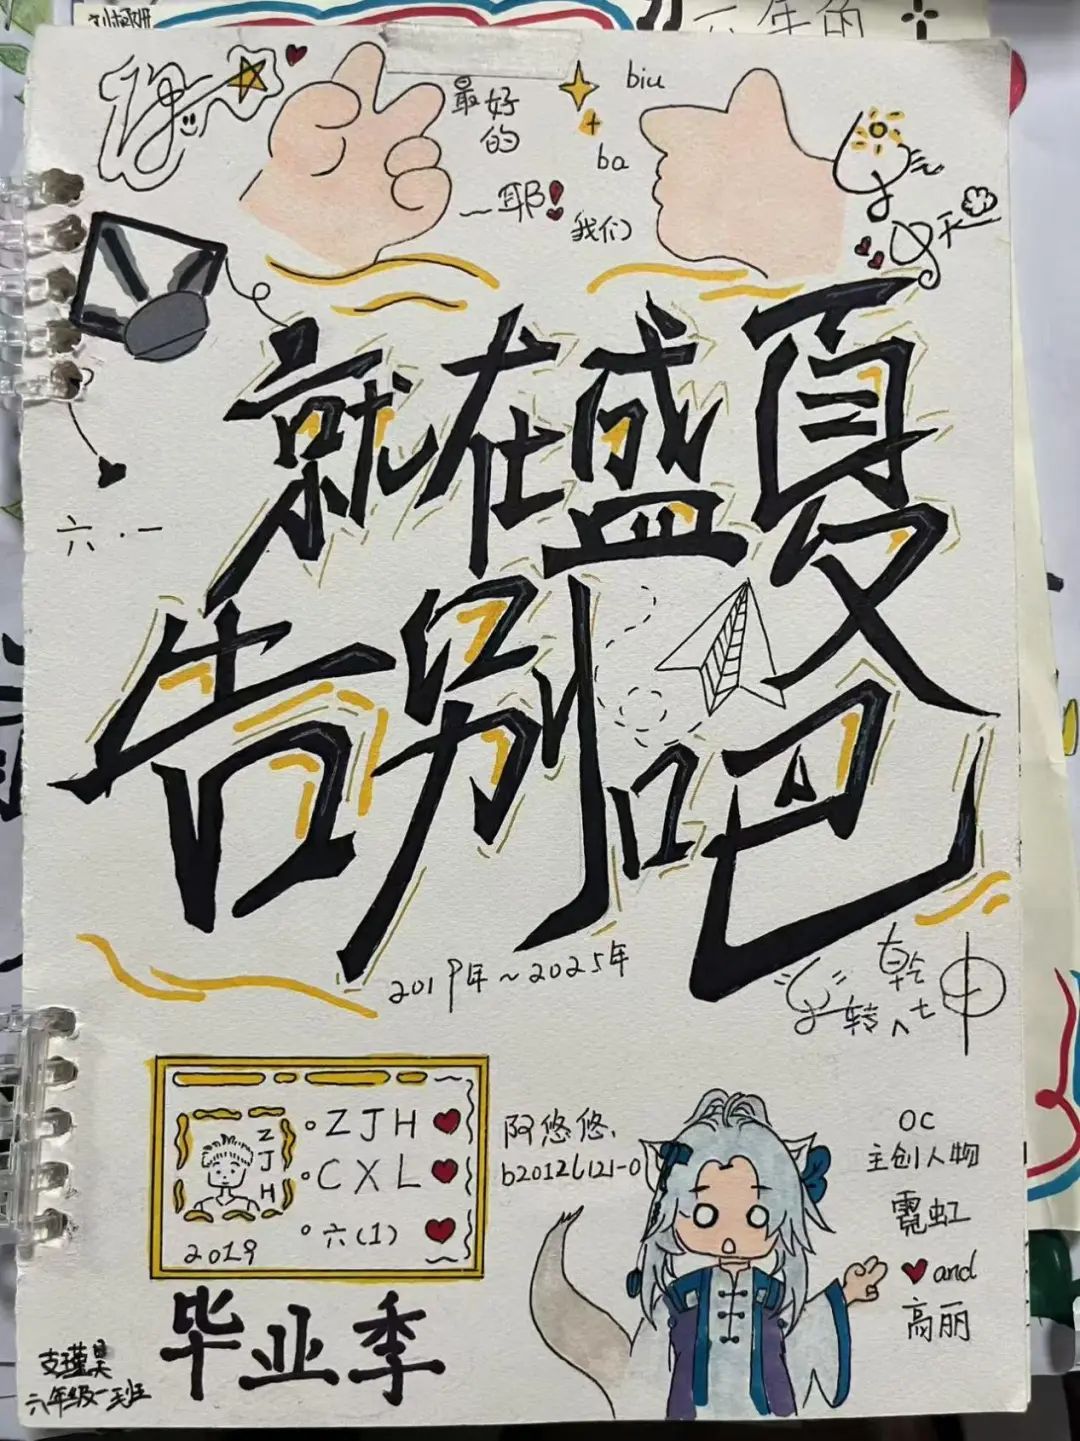 六年的
biu
最好
的
ba
一耶！
我们
天
六.一
就在盛夏
告别吧
2019年~2025年
乾
转
ZJH
CXL
六(1)
ZJH
2019
阿悠悠.
b20126121-0
OC
主创人物
霓虹
and
高丽
毕业季
支瑾昊
六年级一班